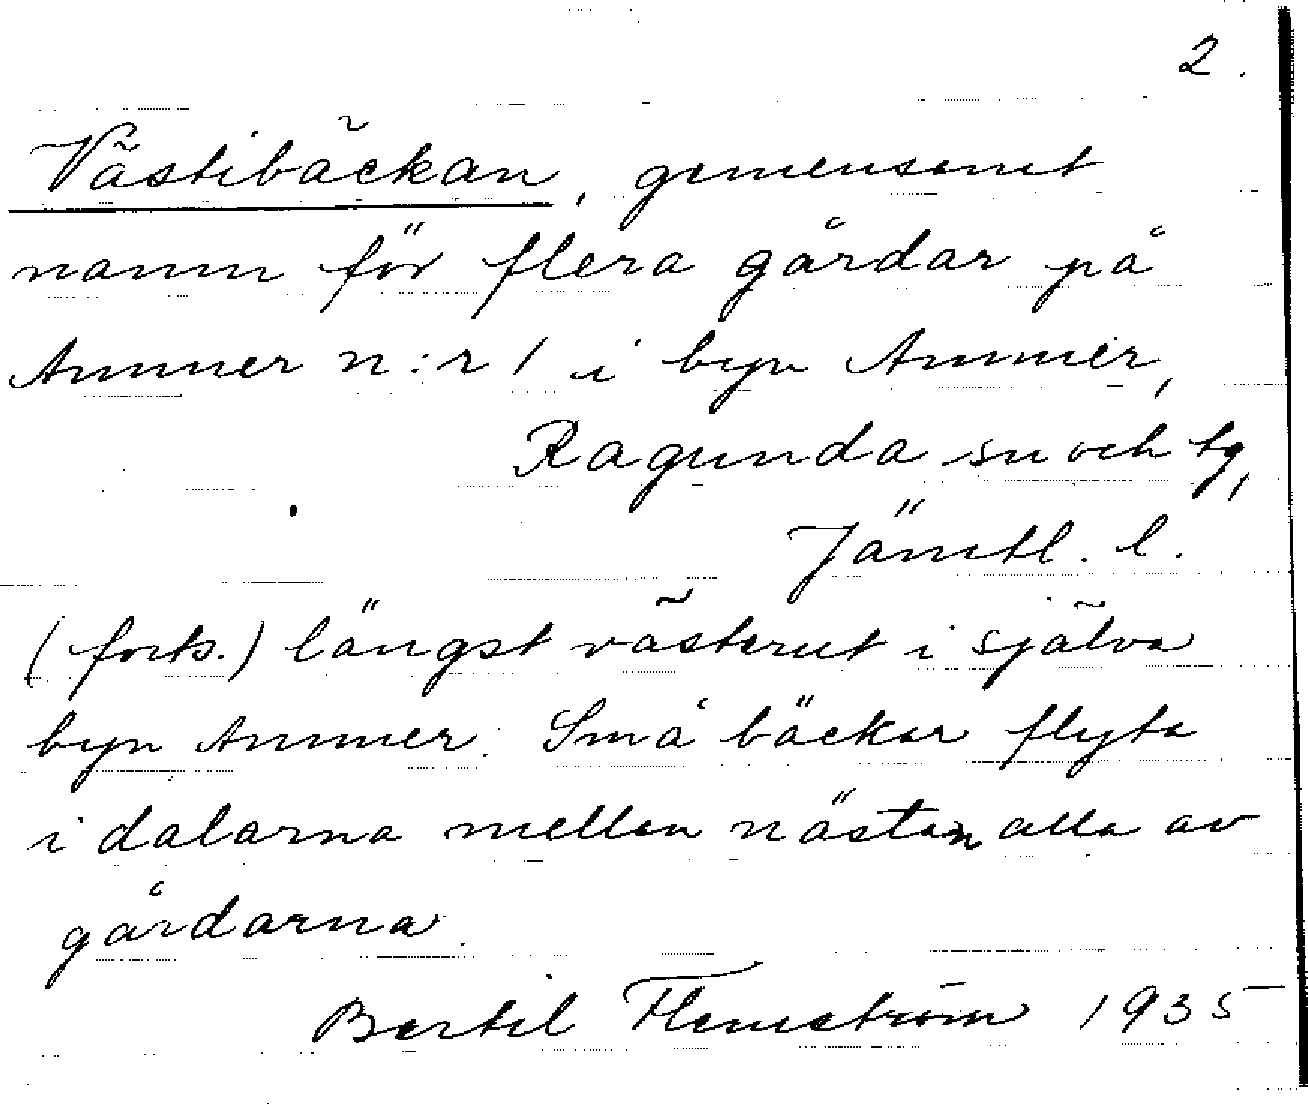 2.
Västibäckan, gemensamt
namn för flera gårdar på
Ammer n:r 1 i byn Ammer,
Ragunda sn och tg,
Jämtl. l.
(forts.) längst västerut i själva
byn Ammer. Små bäckar flyta
i dalarna mellan nästan alla av
gårdarna.
Bertil Flemström 1935